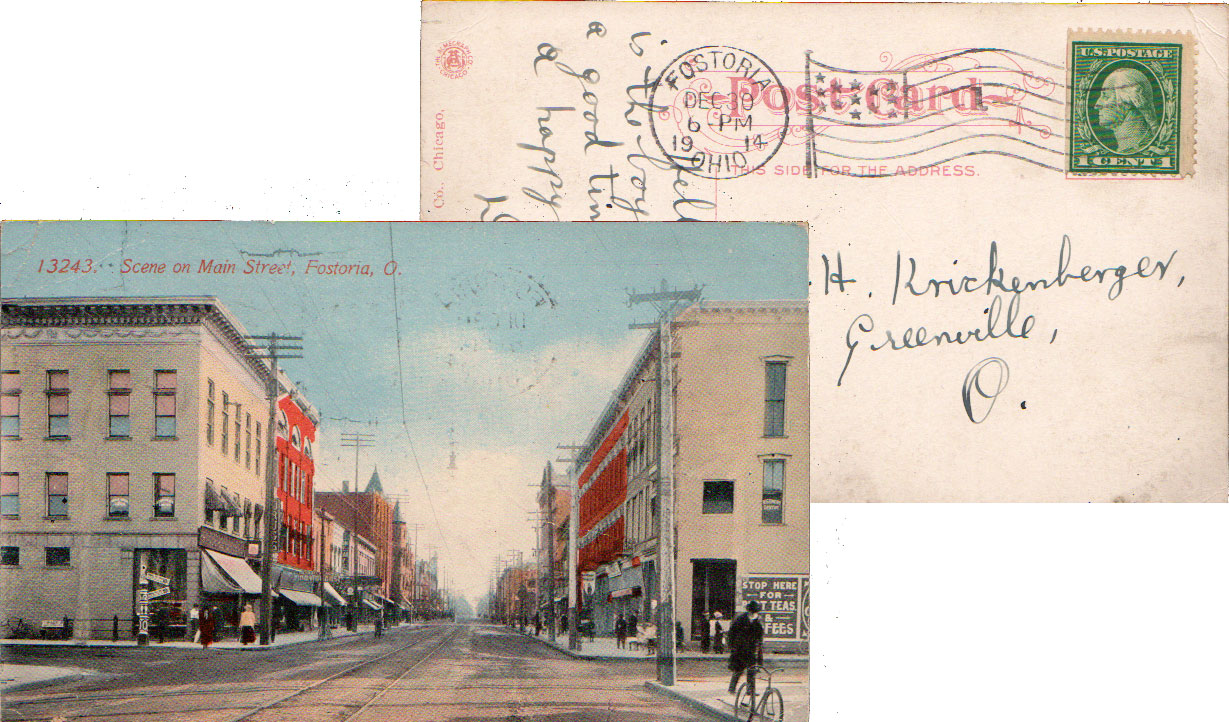 13243. Scene on Main Street, Fostoria, O.
STOP HERE
FOR
TEAS
&
FEES
Post Card
THIS SIDE FOR THE ADDRESS.
FOSTORIA
DEC 30
6 PM
19 14
OHIO
1
U.S. POSTAGE
1 CENT 1
CHICAGO
Co., Chicago.
is the boy
a good tim
a happy
H. Krickenberger,
Greenville,
O.